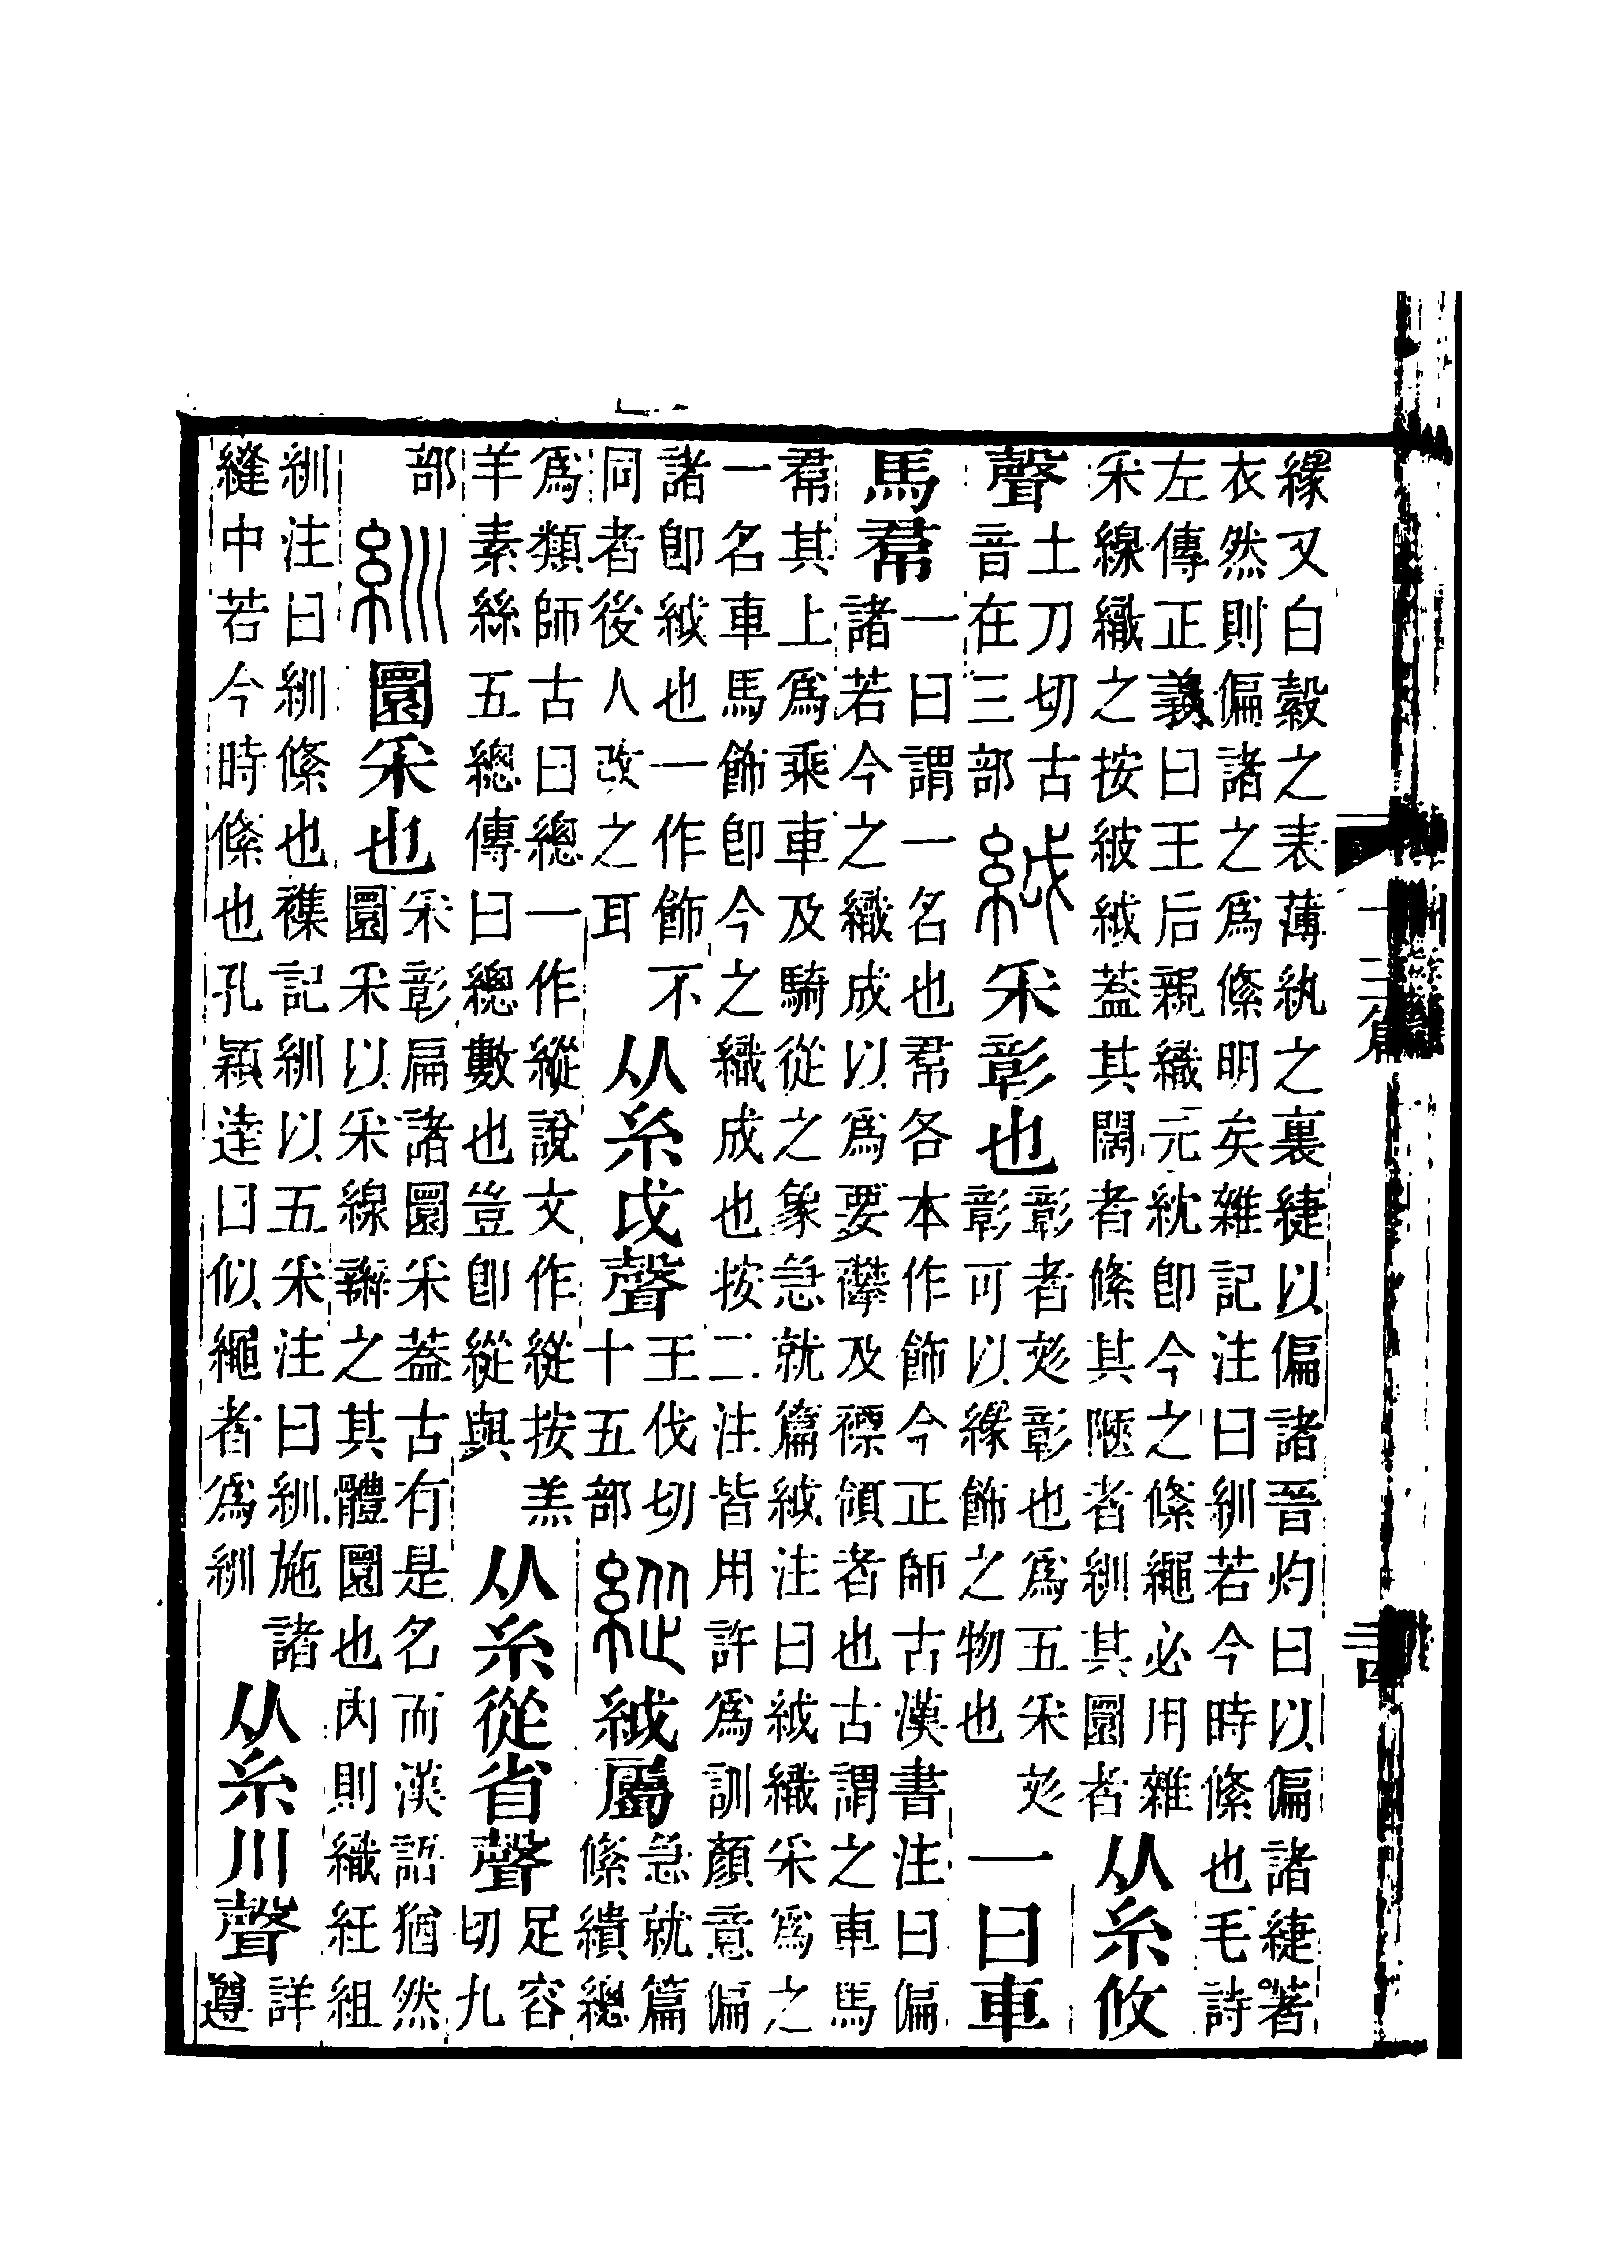 緣又白縠之表薄紈之裏緁以偏諸晉灼曰以偏諸緁著
衣然則偏諸之爲絛明矣雜記注曰紃若今時絛也毛詩
左傳正義曰王后親織元紞卽今之絛繩必用雜
采線織之按紴䋐蓋其闊者絛其陿者紃其圜者
从糸攸
聲
土刀切古
音在三部
䋐
采彰也
彰者㣋彰也爲五采㣋
彰可以緣飾之物也
一曰車
馬帬
一曰謂一名也帬各本作飾今正師古漢書注曰偏
諸若今之織成以爲要襻及褾領者也古謂之車馬
帬其上爲乘車及騎從之象急就篇䋐注曰䋐織采爲之
一名車馬飾卽今之織成也按二注皆用許爲訓顏意偏
諸卽䋐也一作飾不
同者後人改之耳
从糸戉聲
王伐切
十五部
䋐屬
急就篇
絛繢總
爲類師古曰總一作縱說文作縱按羔
羊素絲五總傳曰總數也豈卽縱與
从糸從省聲
足容
切九
部
紃
圜采也
采彰扁諸圜采蓋古有是名而漢語猶然
圜采以采線辮之其體圜也內則織紝組
紃注曰紃絛也襍記紃以五采注曰紃施諸
縫中若今時絛也孔穎達曰似繩者爲紃
从糸川聲
詳
遵